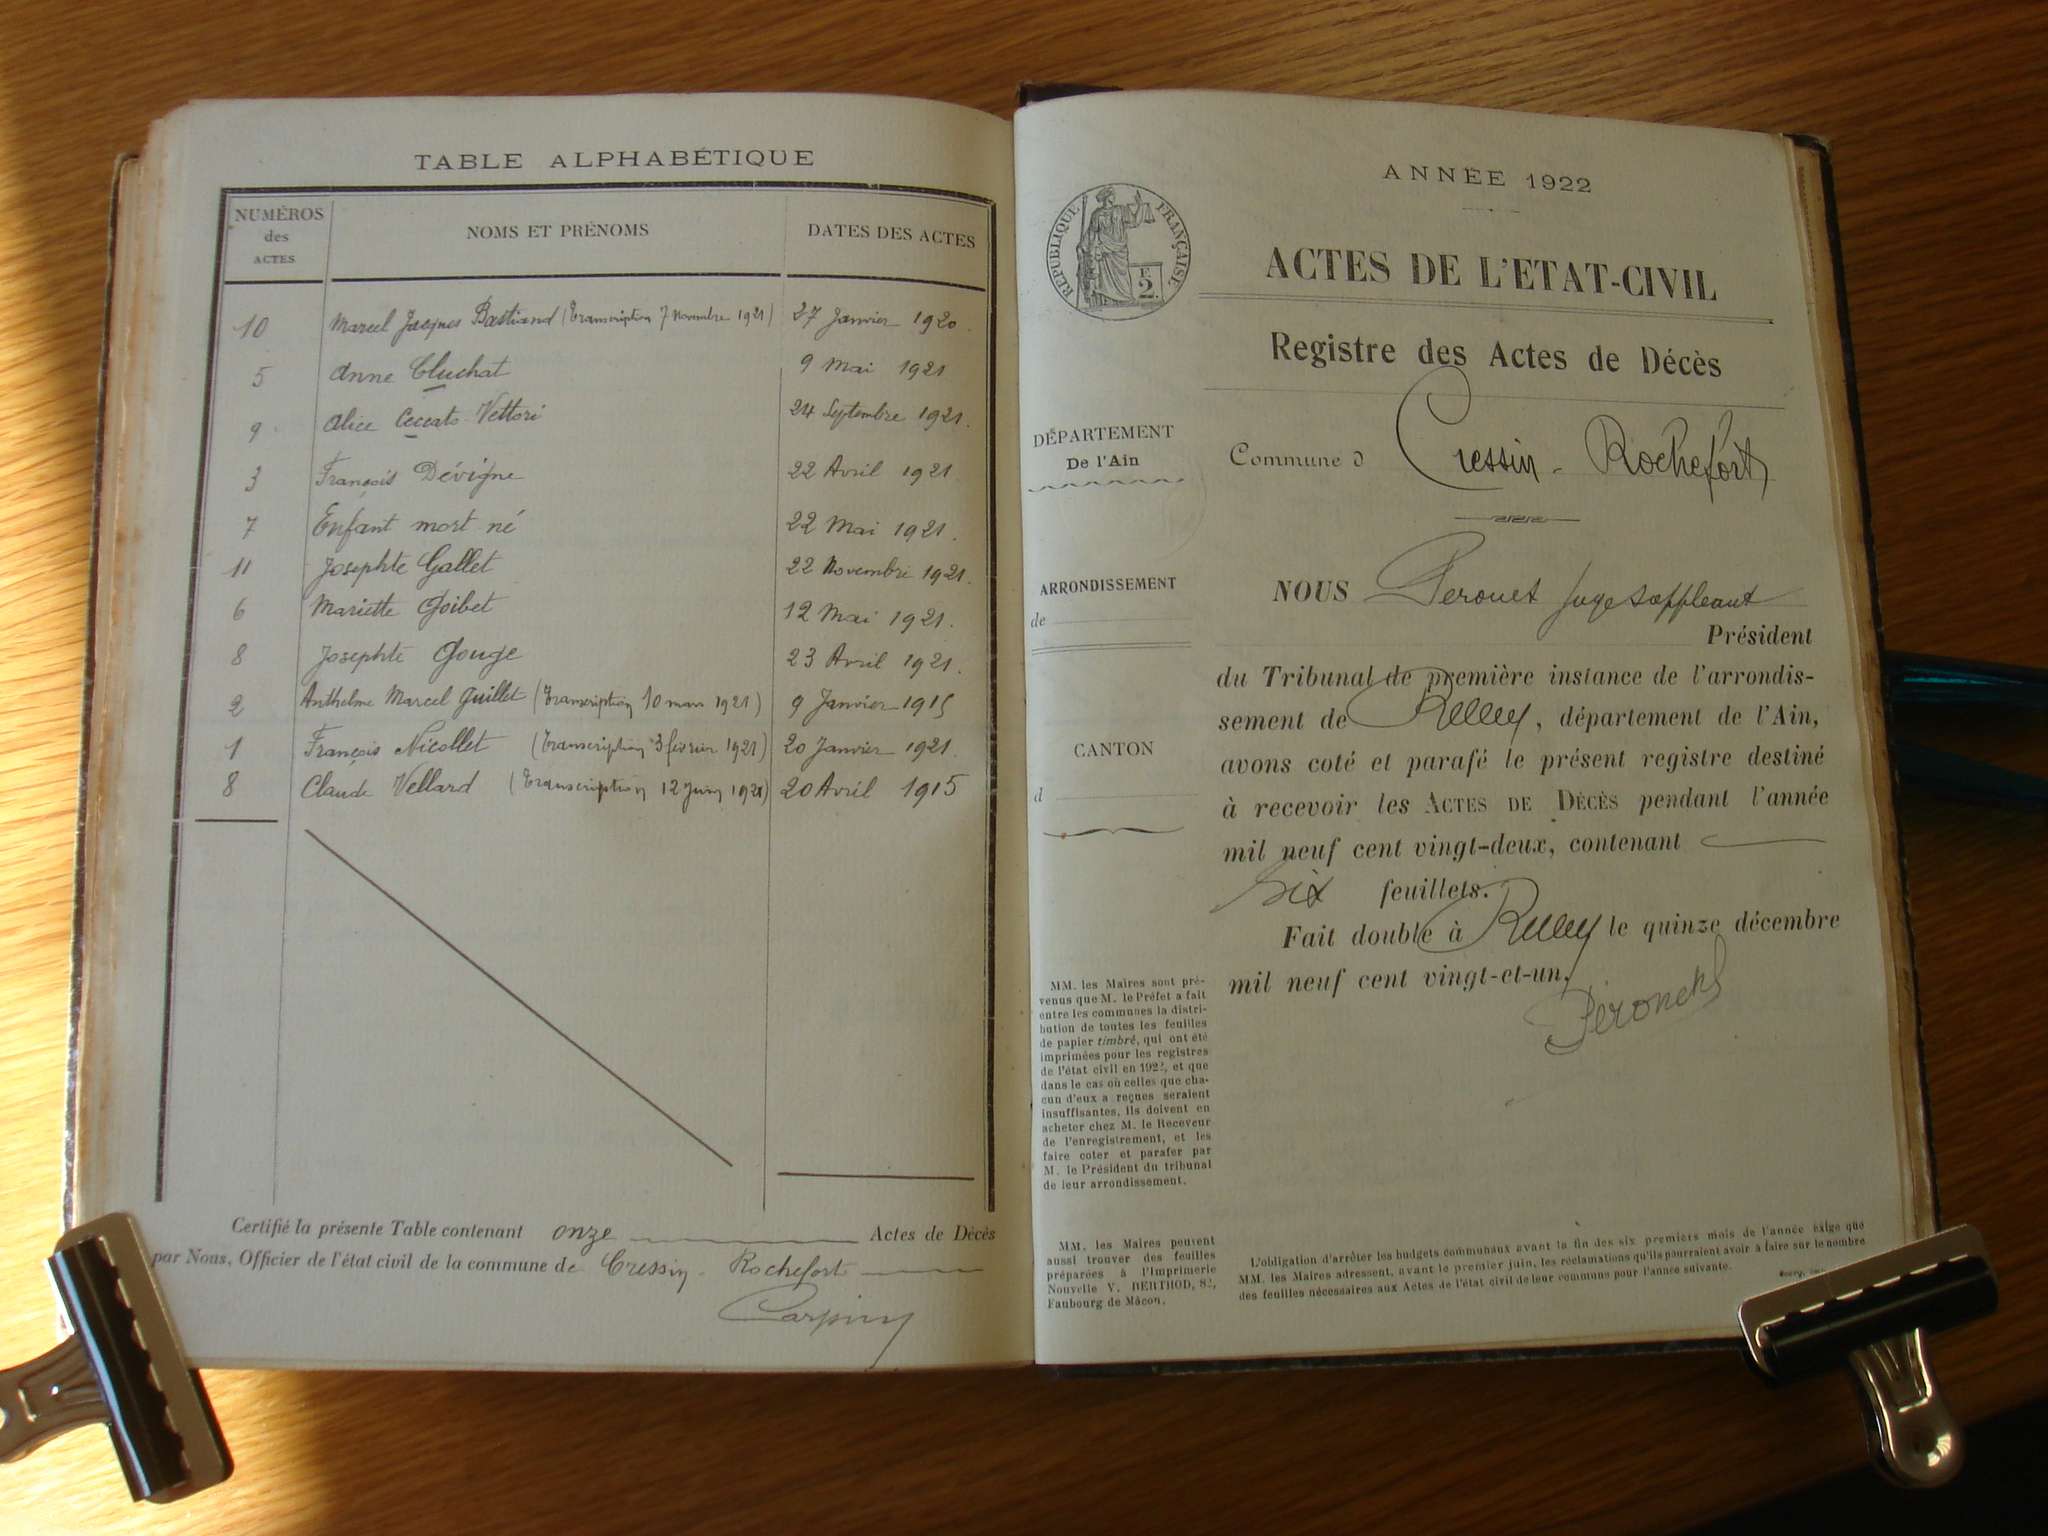 TABLE ALPHABÉTIQUE
NUMÉROS des ACTES
NOMS ET PRÉNOMS
DATES DES ACTES
10 Marcel Jacques Bastiand (Transcription 7 novembre 1921) 27 Janvier 1920
5 Anne Cluchat 9 Mai 1921
9 Alice Ceccato Vettori 24 Septembre 1921.
3 François Dévigne 22 Avril 1921
7 Enfant mort né 22 Mai 1921.
11 Josephte Gallet 22 Novembre 1921.
6 Mariette Goibet 12 Mai 1921.
8 Josephte Gouge 23 Avril 1921.
2 Anthelme Marcel Guillet (Transcription 10 mars 1921) 9 Janvier 1915
1 François Nicollet (Transcription 3 février 1921) 20 Janvier 1921.
8 Claude Vellard (Transcription 12 Juin 1921) 20 Avril 1915
Certifié la présente Table contenant onze Actes de Décès
par Nous, Officier de l'état civil de la commune de Cressin Rochefort
ANNÉE 1922
RÉPUBLIQUE FRANÇAISE
2
ACTES DE L'ETAT-CIVIL
Registre des Actes de Décès
DÉPARTEMENT
De l'Ain
Commune d Cressin-Rochefort
ARRONDISSEMENT
de
NOUS Perouet Juge suppléant
Président
du Tribunal de première instance de l'arrondis-
sement de Belley, département de l'Ain,
CANTON
avons coté et parafé le présent registre destiné
d
à recevoir les ACTES DE DÉCÈS pendant l'année
mil neuf cent vingt-deux, contenant
Six feuillets.
Fait double à Belley le quinze décembre
mil neuf cent vingt-et-un.
MM. les Maires sont pré-
venus que M. le Préfet a fait
entre les communes la distri-
bution de toutes les feuilles
de papier timbré, qui ont été
imprimées pour les registres
de l'état civil en 1922, et que
dans le cas où celles que cha-
cun d'eux a reçues seraient
insuffisantes, ils doivent en
acheter chez M. le Receveur
de l'enregistrement, et les
faire coter et parafer par
M. le Président du tribunal
de leur arrondissement.
MM. les Maires peuvent
aussi trouver des feuilles
préparées à l'Imprimerie
Nouvelle V. BERTHOD,
Faubourg de Mâcon.
L'obligation d'arrêter les budgets communaux avant la fin des six premiers mois de l'année exige que
MM. les Maires adressent, avant le premier juin, les réclamations qu'ils pourraient avoir à faire sur le nombre
des feuilles nécessaires aux Actes de l'état civil de leur commune pour l'année suivante.